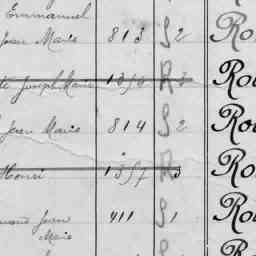 Emmanuel
Jean Marie 813 S 2 Ro
Joseph Marie R 3 Ro
Jean Marie 814 S 2 Ro
Henri 1357 R 3 Ro
Jean 411 S 1 Ro
Marie